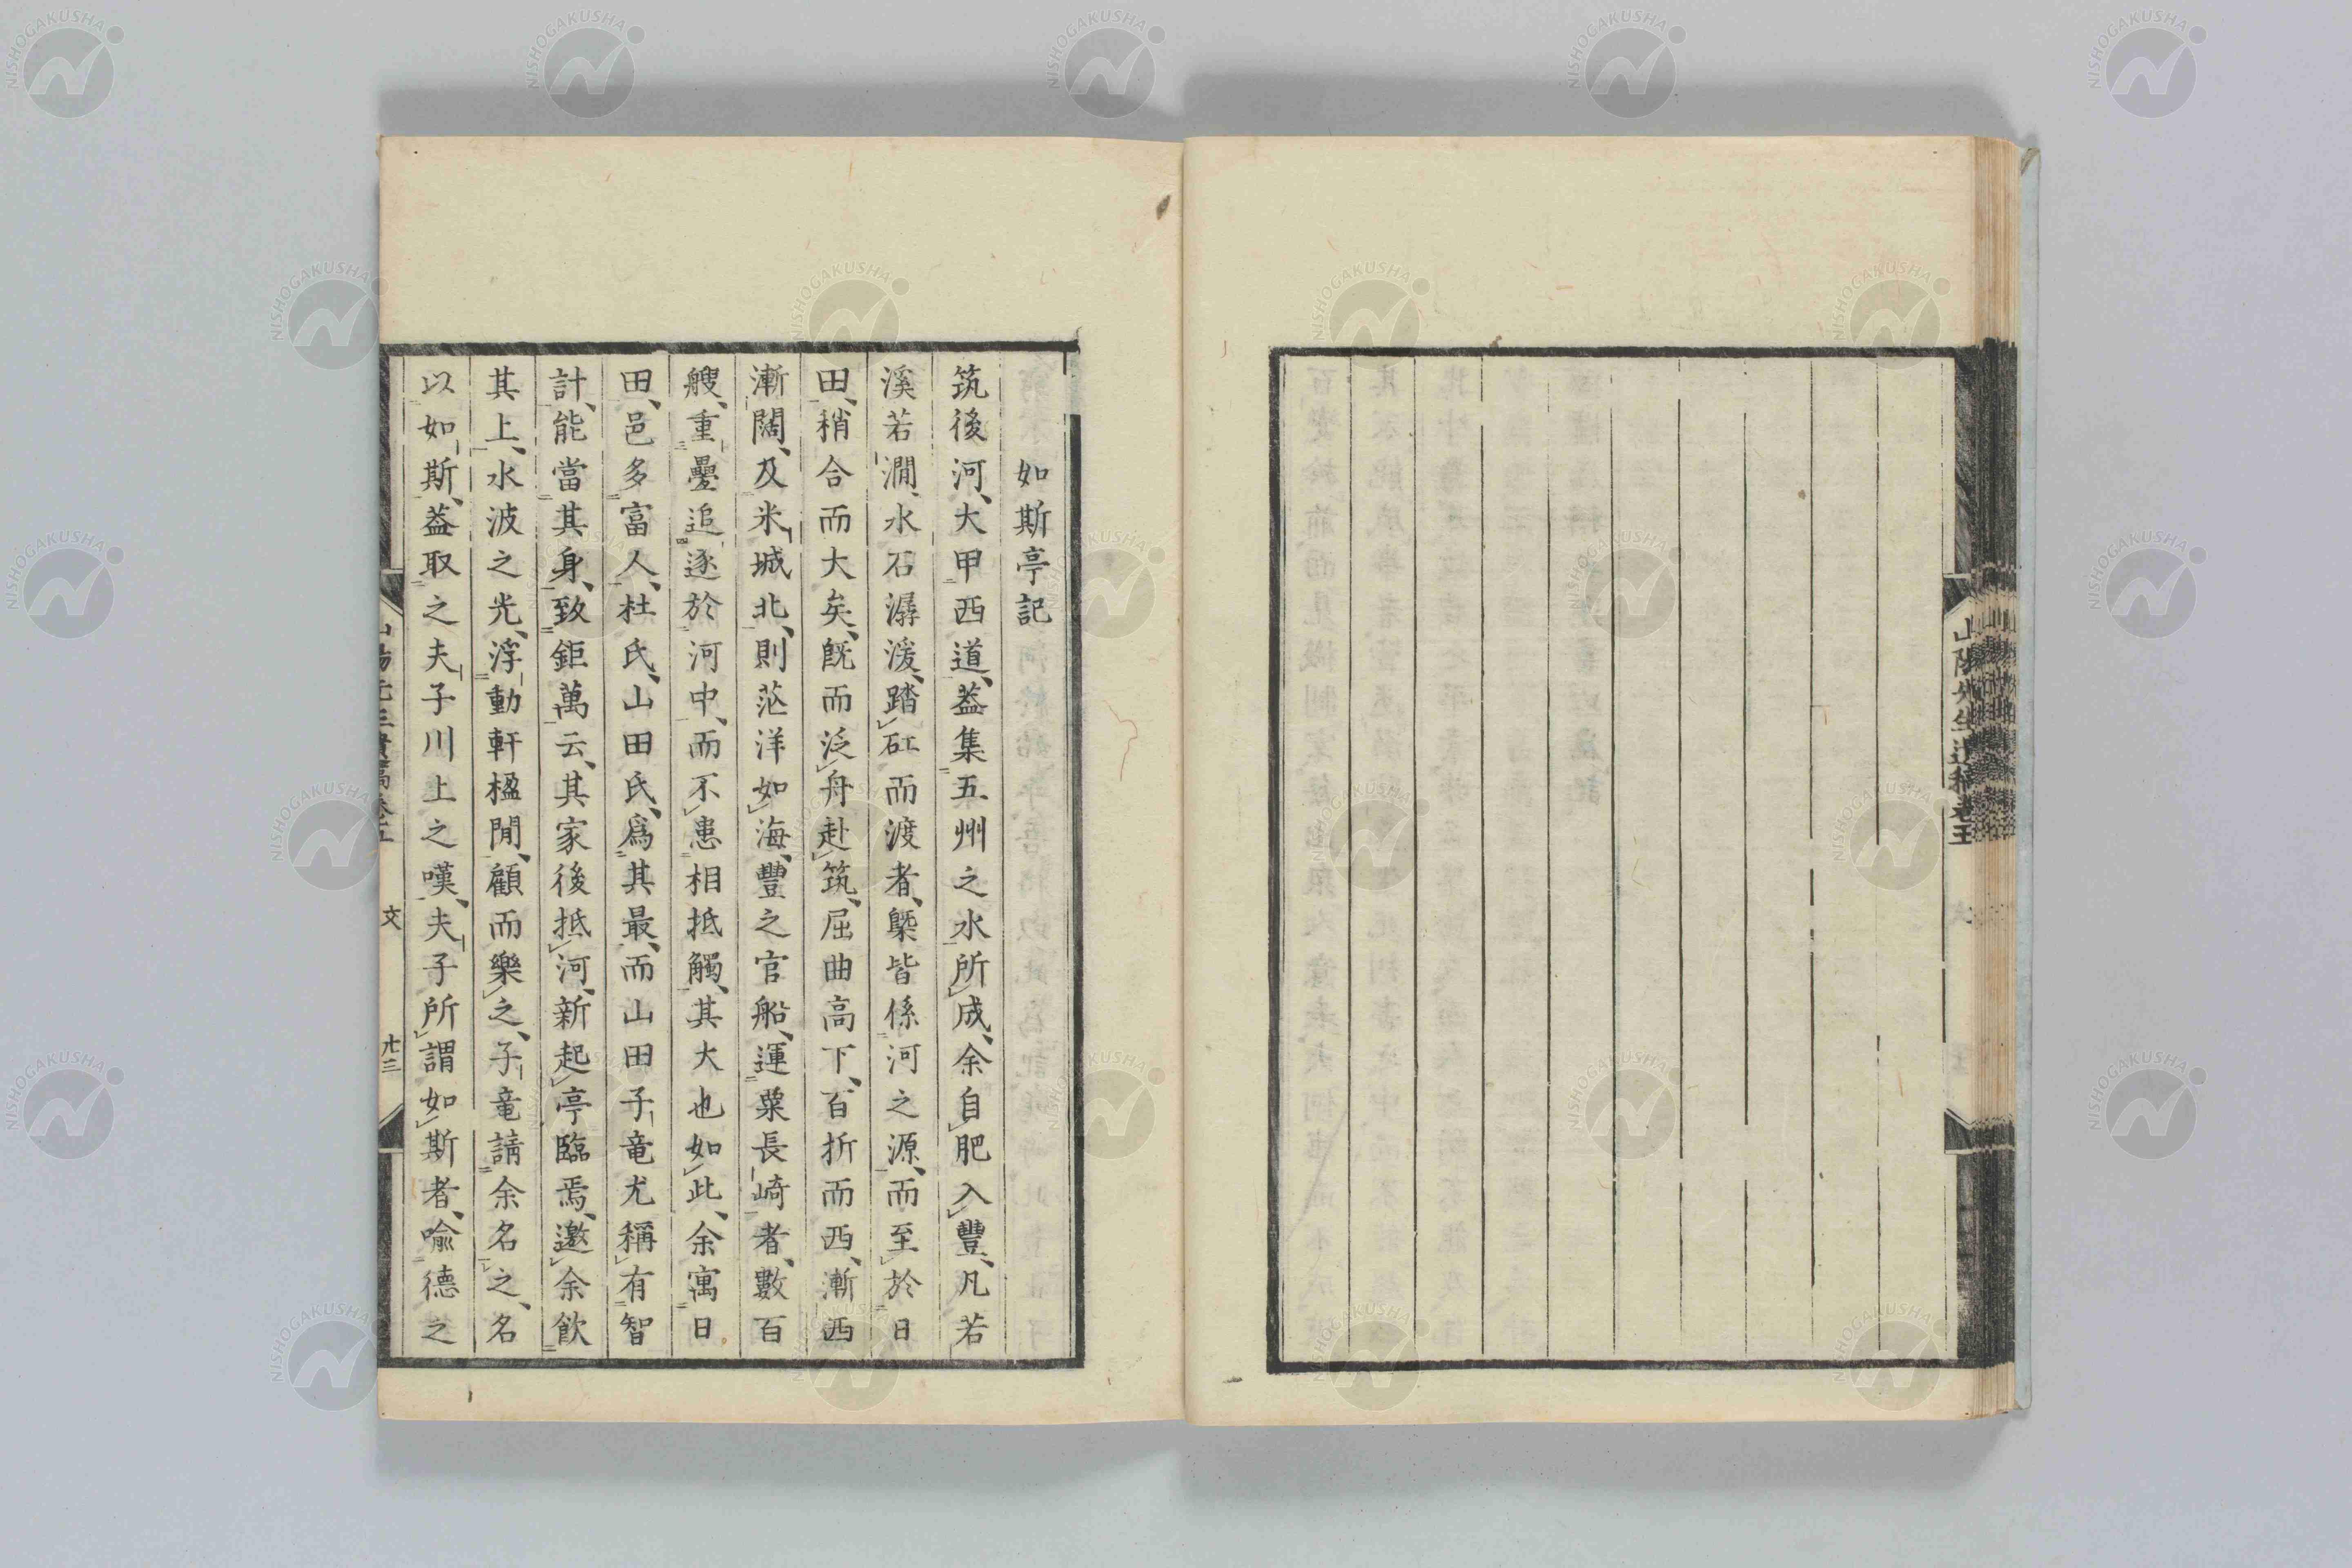 山陽先生遺稿卷五
如斯亭記
筑後河、大甲西道、葢集五州之水所成、余自肥入豐、凡若
溪若澗、水石潺湲、踏矼而渡者、槩皆係河之源、而至於日
田、稍合而大矣、既而泛舟赴筑、屈曲高下、百折而西、漸西
漸闊、及米城北、則茫洋如海、豐之官船、運粟長崎者、數百
艘、重疊追逐於河中、而不患相抵觸、其大也如此、余寓日
田、邑多富人、杜氏、山田氏、爲其最、而山田子竜尤稱有智
計、能當其身、致鉅萬云、其家後抵河、新起亭臨焉、邀余飲
其上、水波之光、浮動軒楹閒、顧而樂之、子竜請余名之、名
以如斯、葢取之夫子川上之嘆、夫子所謂如斯者、喩德之
文
廿三
NISHOGAKUSHA